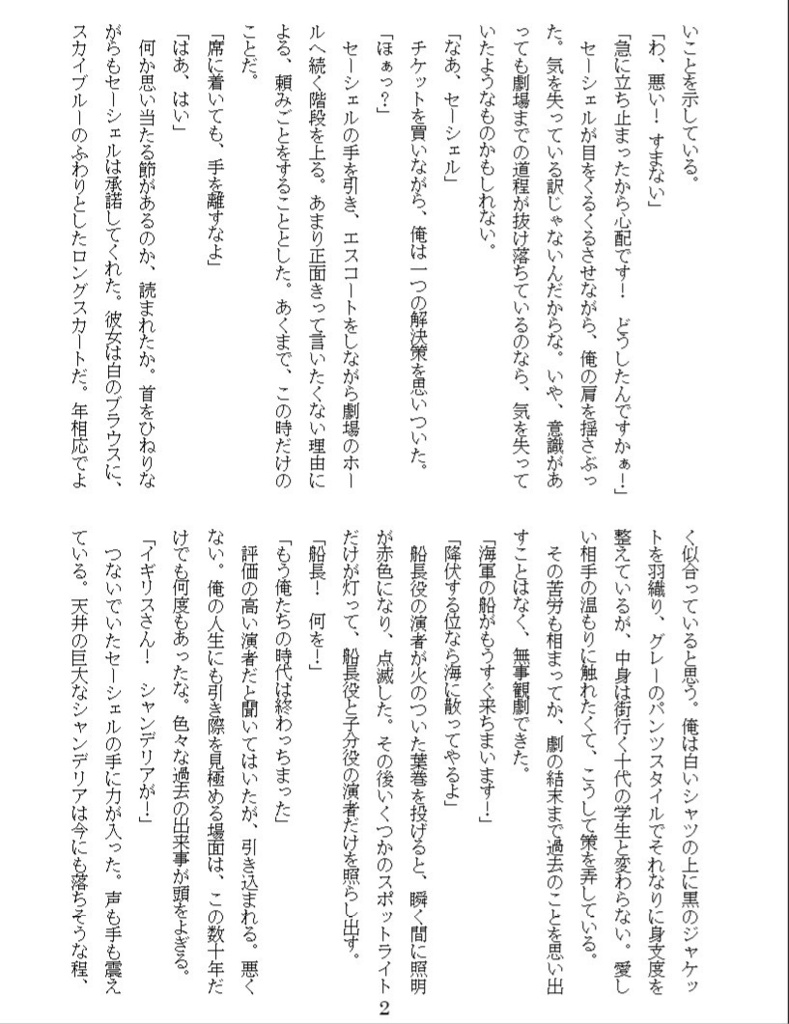 いことを示している。
「わ、悪い！ すまない」
「急に立ち止まったから心配です！　どうしたんですかぁ！」
　セーシェルが目をくるくるさせながら、俺の肩を揺さぶっ
た。気を失っている訳じゃないんだからな。いや、意識があ
っても劇場までの道程が抜け落ちているのなら、気を失って
いたようなものかもしれない。
「なあ、セーシェル」
　チケットを買いながら、俺は一つの解決策を思いついた。
「ほぁっ？」
　セーシェルの手を引き、エスコートをしながら劇場のホー
ルへ続く階段を上る。あまり正面きって言いたくない理由に
よる、頼みごとをすることとした。あくまで、この時だけの
ことだ。
「席に着いても、手を離すなよ」
「はあ、はい」
　何か思い当たる節があるのか、読まれたか。首をひねりな
がらもセーシェルは承諾してくれた。彼女は白のブラウスに、
スカイブルーのふわりとしたロングスカートだ。年相応でよ
く似合っていると思う。俺は白いシャツの上に黒のジャケッ
トを羽織り、グレーのパンツスタイルでそれなりに身支度を
整えているが、中身は街行く十代の学生と変わらない。愛し
い相手の温もりに触れたくて、こうして策を弄している。
　その苦労も相まってか、劇の結末まで過去のことを思い出
すことはなく、無事観劇できた。
「海軍の船がもうすぐ来ちまいます！」
「降伏する位なら海に散ってやるよ」
　船長役の演者が火のついた葉巻を投げると、瞬く間に照明
が赤色になり、点滅した。その後いくつかのスポットライト
だけが灯って、船長役と子分役の演者だけを照らし出す。
「船長！　何を！」
「もう俺たちの時代は終わっちまった」
　評価の高い演者だと聞いてはいたが、引き込まれる。悪く
ない。俺の人生にも引き際を見極める場面は、この数十年だ
けでも何度もあったな。色々な過去の出来事が頭をよぎる。
「イギリスさん！　シャンデリアが！」
　つないでいたセーシェルの手に力が入った。声も手も震え
ている。天井の巨大なシャンデリアは今にも落ちそうな程、
2